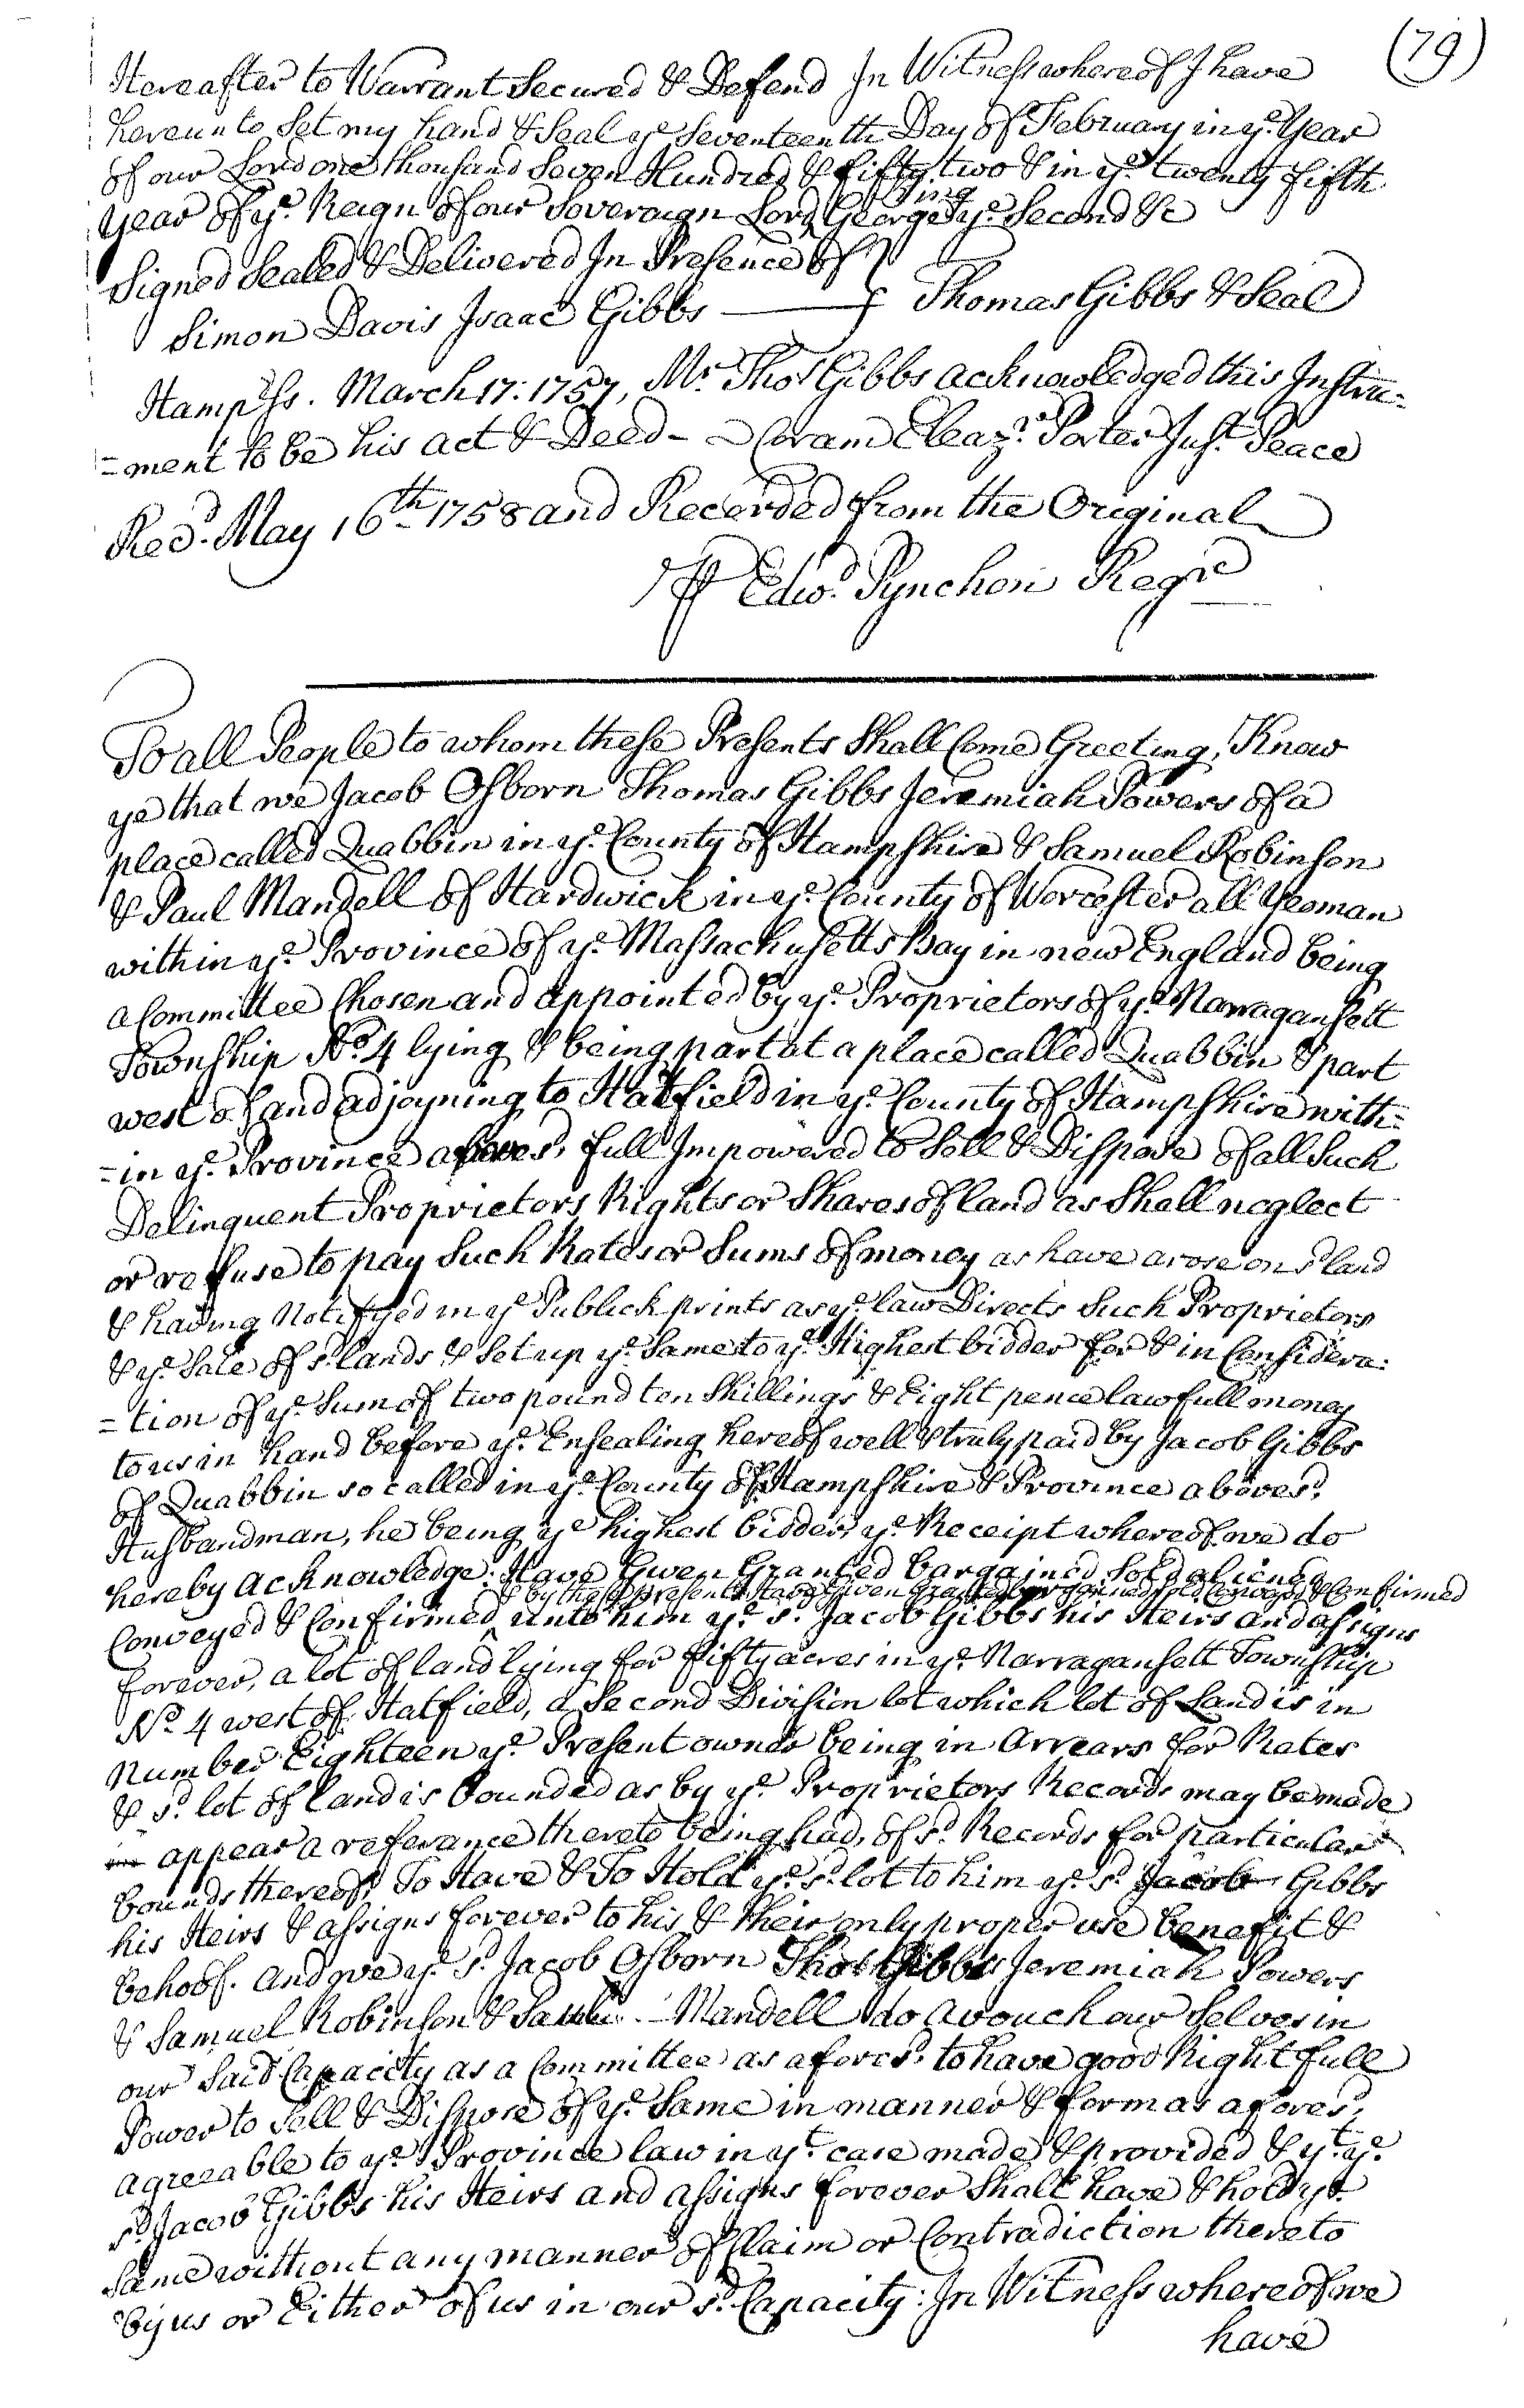 (79)
Hereafter to Warrant Secured & Defend In Witness whereof I have
hereunto Set my hand & Seal ye. Seventeenth Day of February in ye. Year
of our Lord one thousand Seven Hundred & fifty two & in ye. twenty fifth
year of ye. Reign of our Soveraign Lord King George ye. Second &c
Signed Sealed & Delivered In Presence of }
Simon Davis Isaac Gibbs —— } Thomas Gibbs & Seal
Hampss. March 17: 1757, Mr. Thos. Gibbs acknowledged this Instru=
=ment to be his act & Deed - Coram Eleazr. Porter Just. Peace
Recd. May 16th 1758 and Recorded from the Original
Edwd. Pynchon Regr.
To all People to whom these Presents Shall Come Greeting, Know
ye that we Jacob Osborn Thomas Gibbs Jeremiah Powers of a
place called Quabbin in ye. County of Hampshire & Samuel Robinson
& Paul Mandell of Hardwick in ye. County of Worcester all Yeoman
within ye. Province of ye. Massachusetts Bay in new England being
a Committee Chosen and appointed by ye. Proprietors of ye. Narragansett
Township No. 4 lying & being part at a place called Quabbin & part
west of and adjoyning to Hatfield in ye. County of Hampshire with=
=in ye. Province abovesd. full Impowered to Sell & Dispose of all Such
Delinquent Proprietors Rights or Shares of land as Shall neglect
or refuse to pay Such Rates or Sums of money as have arose on sd. land
& having Notifyed in ye. Publick prints as ye. law Directs Such Proprietors
& ye. Sale of sd. lands & Set up ye. Same to ye. Highest bidder for & in Considera=
=tion of ye. Sum of two pound ten Shillings & Eight pence lawfull money
to us in hand before ye. Ensealing hereof well & truly paid by Jacob Gibbs
of Quabbin so called in ye. County of Hampshire & Province abovesd.
Husbandman, he being ye highest bidder, ye. Receipt whereof we do
hereby acknowledge: Have Given Granted bargained Sold aliened
& by these presents Have Given Granted bargained sold Conveyed & Confirmed
Conveyed & Confirmed ^ unto him ye. sd. Jacob Gibbs his Heirs and assigns
forever, a lot of land lying for fifty acres in ye. Narragansett Township
No. 4 west of Hatfield, a Second Division lot which lot of Land is in
Number Eighteen ye. Present owner being in Arrears for Rates
& sd. lot of land is bounded as by ye. Proprietors Records may be made
appear a referance thereto being had, of sd. Records for particular
bounds thereof, To Have & To Hold ye. sd. lot to him ye. sd. Jacob Gibbs
his Heirs & assigns forever to his & their only proper use benefit &
behoof. And we ye. sd. Jacob Osborn Thos Gibbs Jeremiah Powers
& Samuel Robinson & Paul Mandell do avouch our Selves in
our Said Capacity as a Committee as aforesd. to have good Right full
Power to Sell & Dispose of ye. Same in manner & form as aforesd.
agreeable to ye. Province law in yt. case made & provided & yt. ye.
sd. Jacob Gibbs his Heirs and assigns forever Shall have & hold ye.
Same without any manner of Claim or Contradiction thereto
by us or Either of us in our sd. Capacity: In Witness whereof we
have